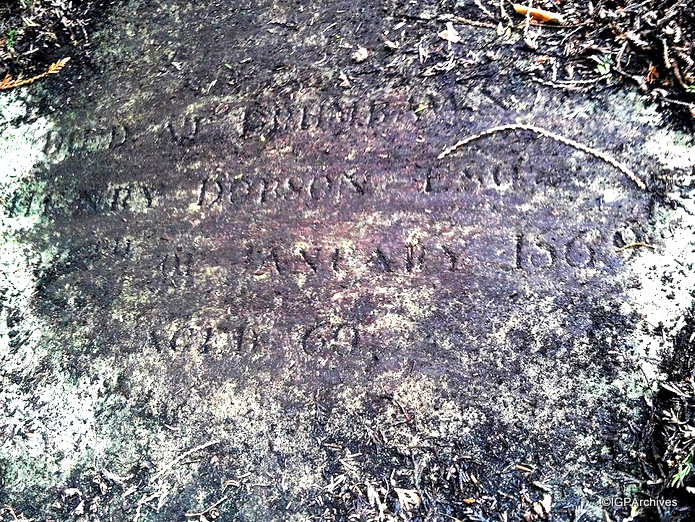 DIED AT
HENRY DOBSON ESQ
TH JANUARY 186
AGED 60
©IGPArchives